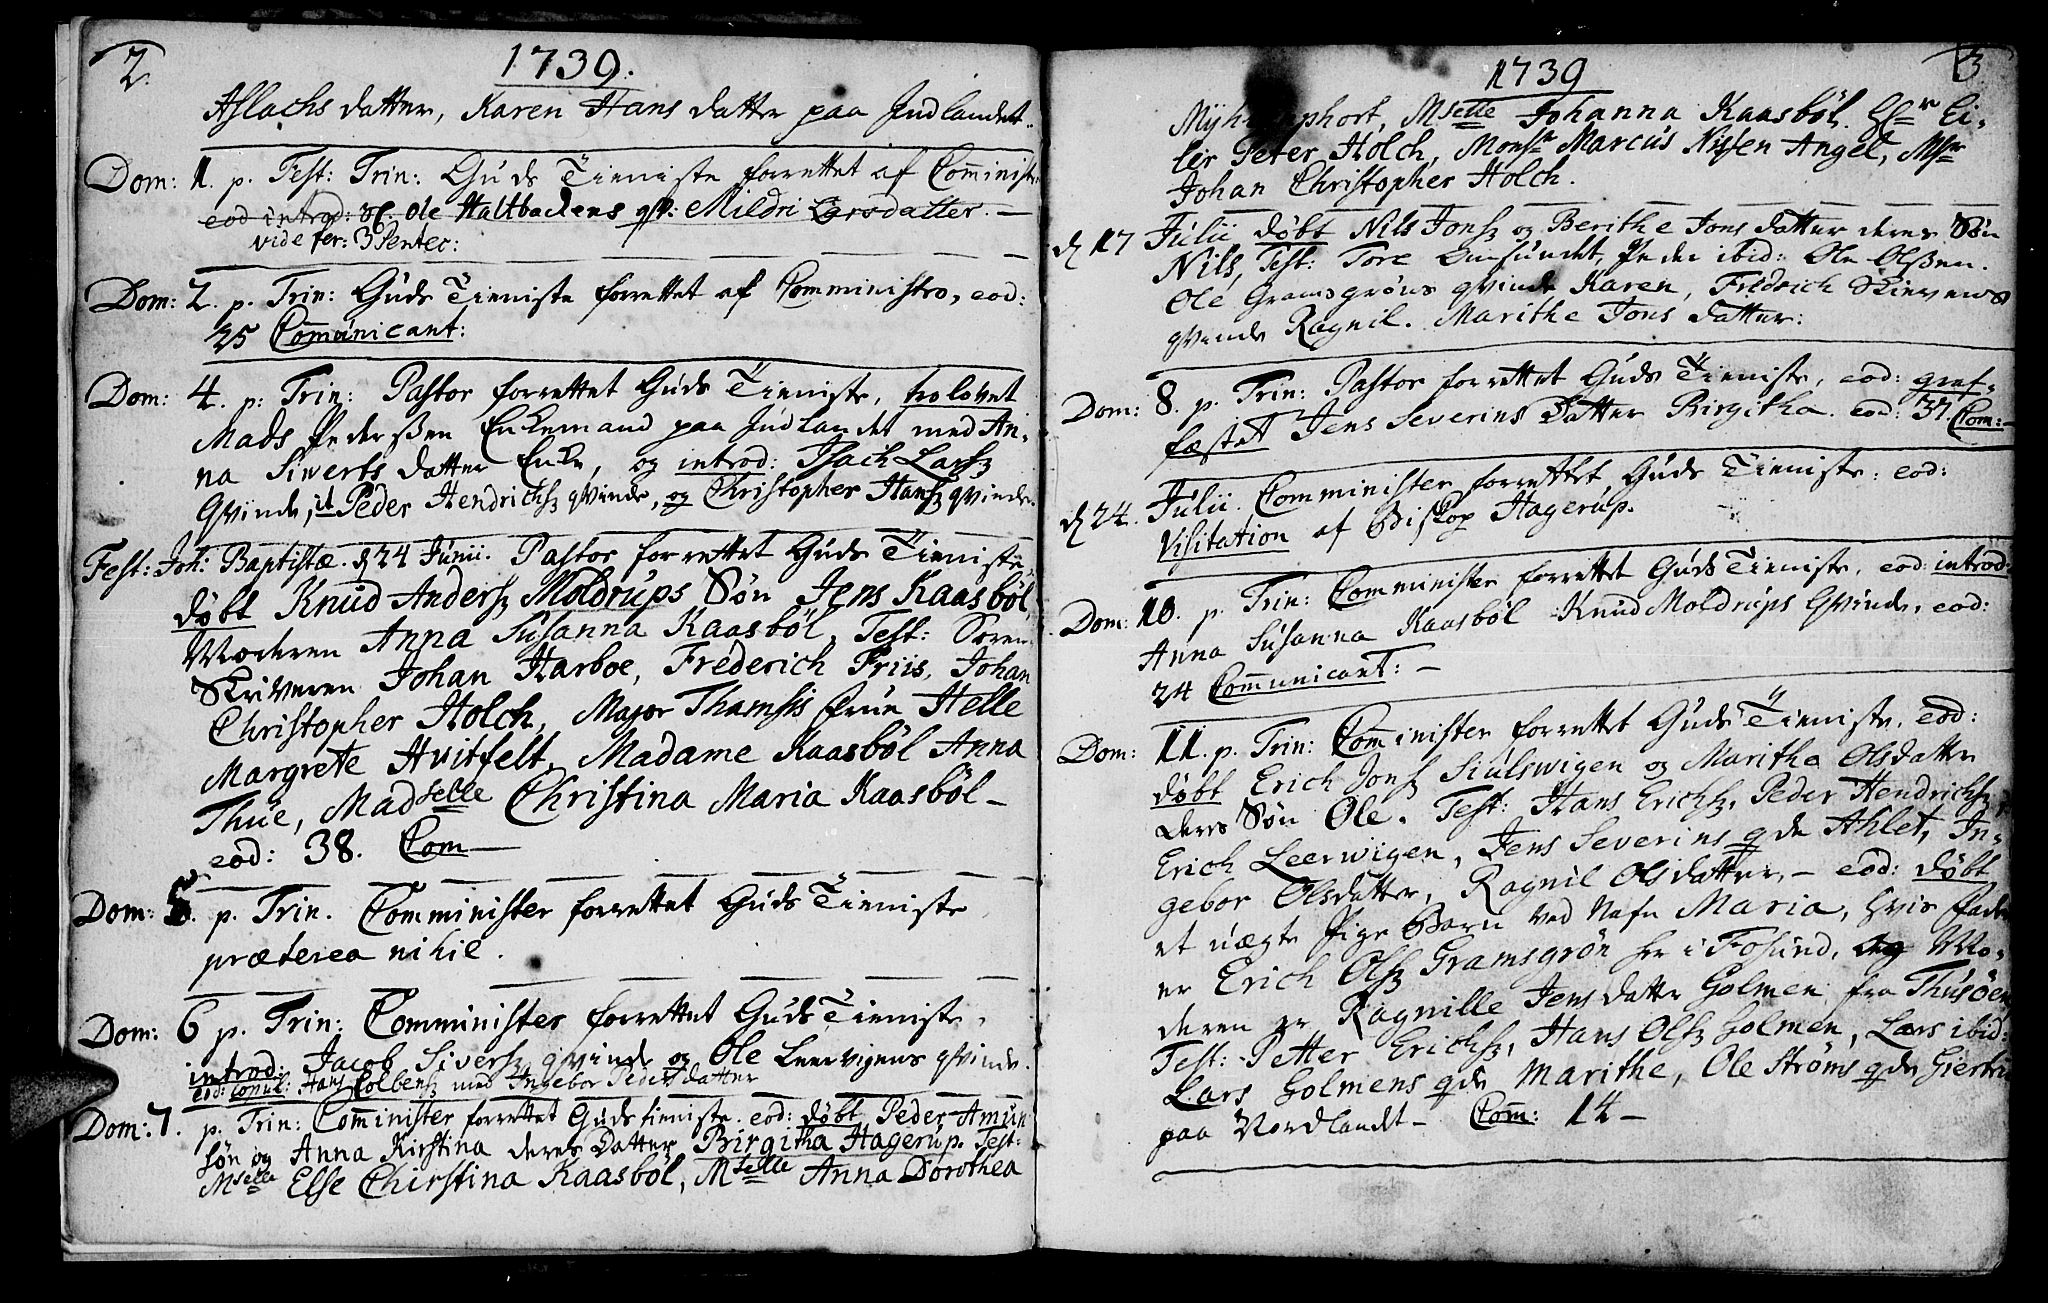 2.
1739.
Aslachs datter, Karen Hans datter paa Indlandet.
Dom: 1. p. Fest: Trin: Guds Tieniste forrettet af Com̅inister
eod introd: Sl. Ole Haltbackens qv: Mildri Larsdatter. —
vide fer: 3 Pentec:
Dom: 2. p. Trin: Guds Tieniste forrettet af Comministro, eod:
25 Com̅unicant:
Dom: 4. p: Trin: Pastor forrettet Guds Tieniste, trolovet
Mads Pederssen Enkemand paa Indlandet med An-
na Siverts datter Enke, og introd: Isach Larsz
Qvinde, it Peder Hendrichsz qvinde, og Christopher Hansz qvinde.
Fest: Joh: Baptistæ. d 24 Junii. Pastor forrettet Guds Tieniste,
døbt Knud Andersz Moldrups Søn Jens Kaasbøl,
Moderen Anna Susanna Kaasbøl, Test: Soren-
Skriveren Johan Harboe, Frederich Friis, Johan
Christopher Holch, Major Thamsis frue Helle
Margrete Hvitfelt, Madame Kaasbøl Anna
Thue, Madselle Christina Maria Kaasbøl —
eod: 38. Com —
Dom: 5. p. Trin. Comminister forrettet Guds Tieniste
præterea nihil.
Dom: 6 p. Trin: Comminister forrettet Guds Tieniste.
introd: Jacob Siversz qvinde og Ole Leervigens qvinde.
eod: copul: Hans Colbensz med Ingebor Peders datter
Dom: 7. p. Trin: Com̅inister forrettet Guds tieniste. eod: døbt Peder Amun
søn og Anna Kirstina deres Datter Birgitha Hagerup. Test:
Mselle Else Chirstina Kaasbøl, Mselle Anna Dorothea
3
1739
Mselle Johanna Kaasbøl. Hr Ei-
ler Peter Holch, Monsr Marcus Nissen Angel, Msr
Johan Christopher Holch.
d 17 Julii døbt Nils Jonsz og Berithe Jons datter deres Søn
Nils, Test: Tore Peder ibid: Ole Olssen.
Ole Gramsgrøns qvinde Karen, Fridrich Skrevens
qvinde Ragnil. Marithe Jons datter:
Dom: 8. p. Trin: Pastor forrettet Guds Tieniste, eod: graf-
fæstet Jens Severins Datter Birgitha. eod: 37. Com: —
d 24. Julii. Comminister forrettet Guds Tieniste. eod:
Visitation af Biskop Hagerup.
Dom: 10. p. Trin: Comminister forrettet Guds Tieniste. eod: introd:
Anna Susanna Kaasbøl Knud Moldrups Qvinde, eod:
24 Com̅unicant: —
Dom: 11. p. Trin: Com̅inister forrettet Guds Tieniste. eod:
døbt Erich Jonsz Siulswigen og Maritha Olsdatter
deres Søn Ole. Test: Hans Erichsz, Peder Hendrichsz
Erich Leerwigen, Jens Severins qde Ahlet, In-
gebor Olsdatter, Ragnil Olsdatter, — eod: døbt
et uægte Pige Barn ved Nafn Maria, hvis fader
er Erich Olsz Gramsgrøn her i Fosund, og Mo-
deren er Ragnille Jens datter Golmen fra Thusøen
Test: Petter Erichsz, Hans Olsz Golmen, Lars ibid:
Lars Golmens qde Marithe, Ole Strøms qde Giertru
paa Nordlandet — Com̅: 14 —